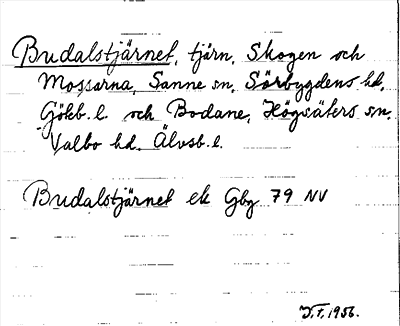 Budalstjärnet, tjärn, Skogen och
Mossarna, Sanne sn, Sörbygdens hd,
Göteb. l. och Bodane, Högsäters sn,
Valbo hd. Älvsb. l.
Budalstjärnet ek Gbg 79 NV
1956.